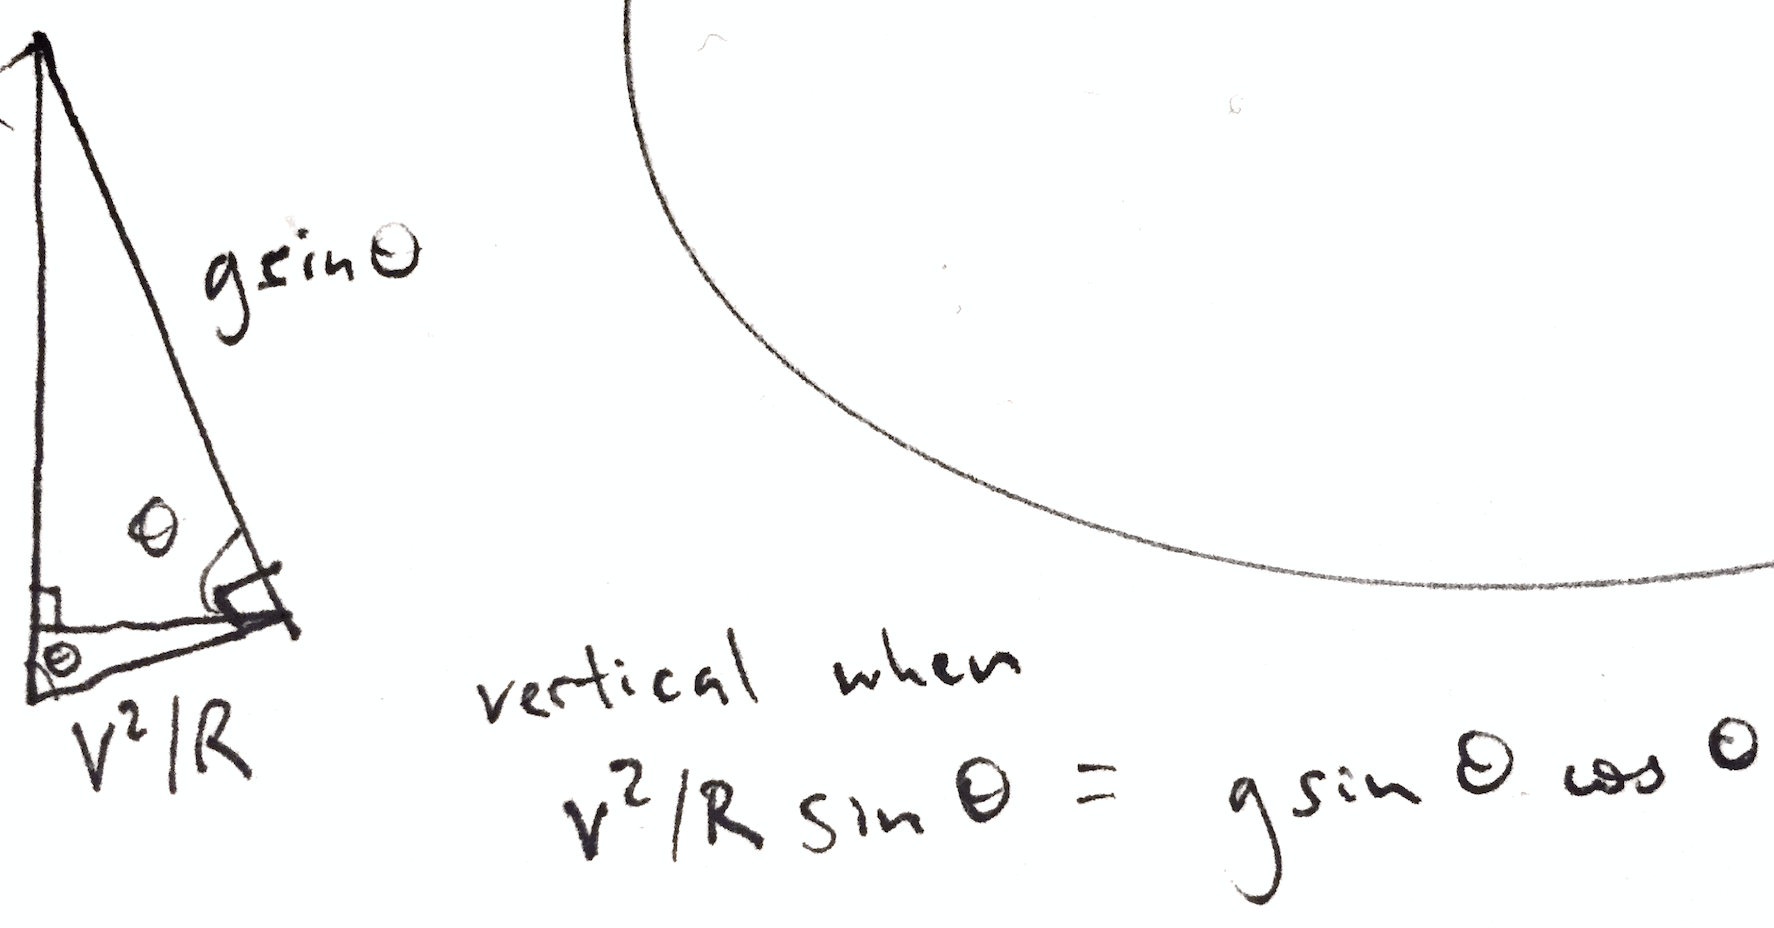 g sin θ
θ
θ
v²/R
vertical when
v²/R sin θ = g sin θ cos θ